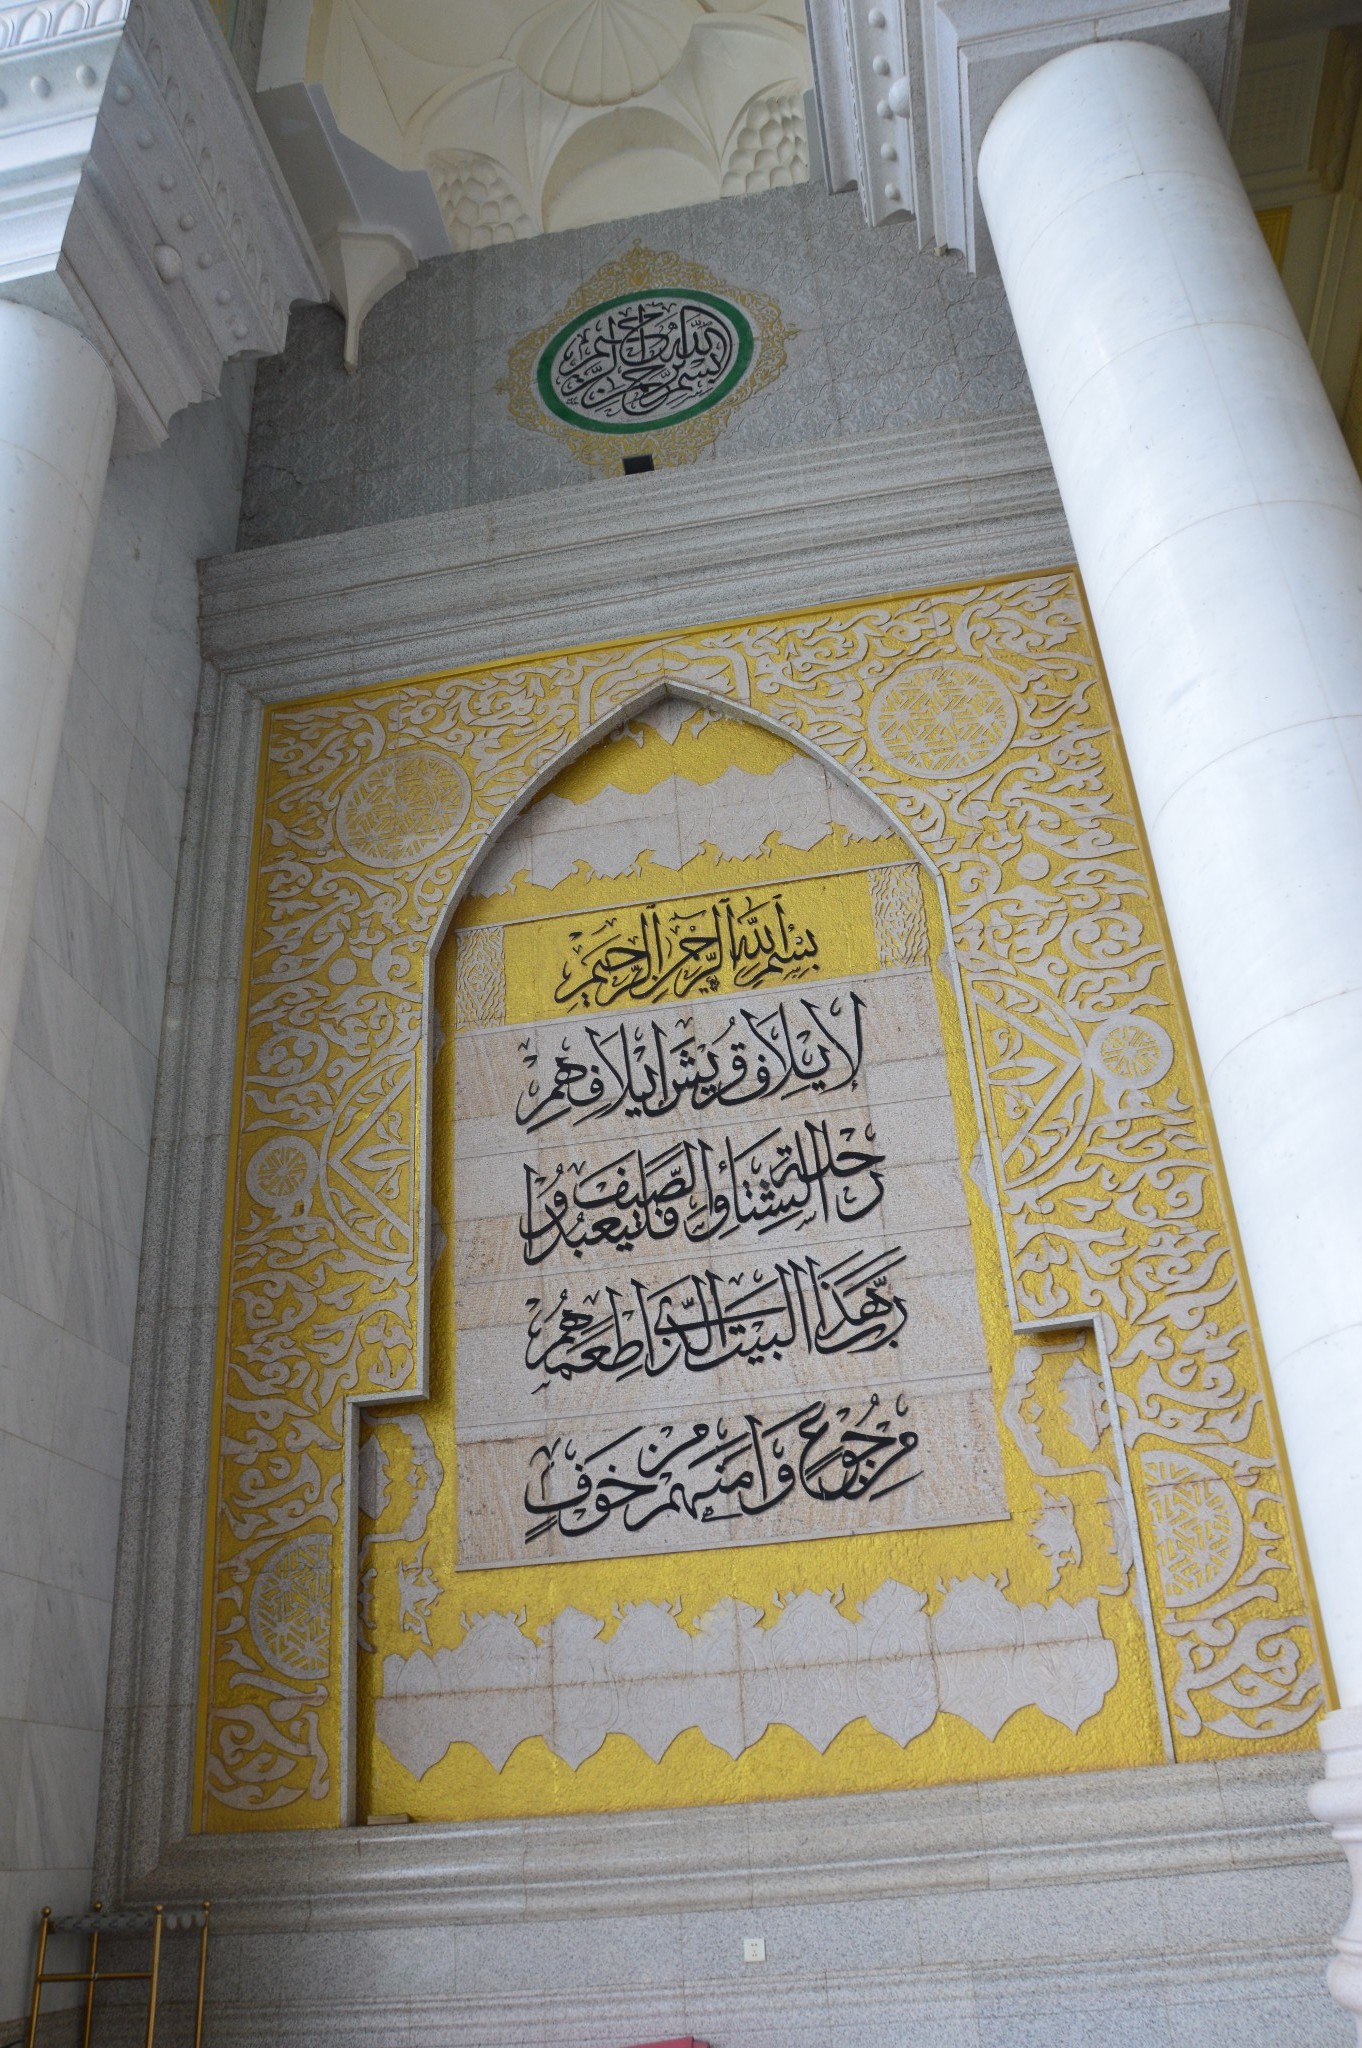 بسم الله الرحمن الرحيم
بِسْمِ اللَّهِ الرَّحْمَنِ الرَّحِيمِ
لايلاف قريش ايلافهم
رحلة الشتاء والصيف فليعبدوا
رب هذا البيت الذي اطعمهم
من جوع وامنهم من خوف